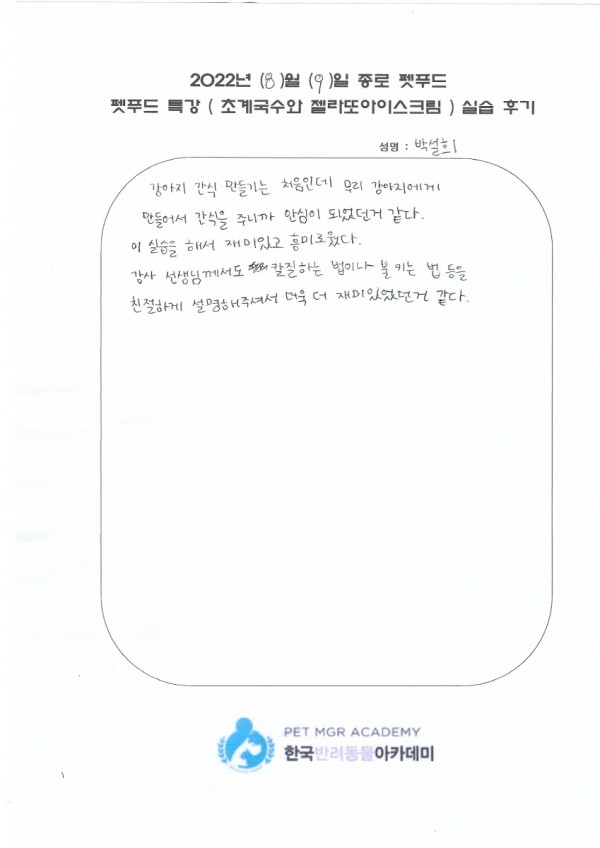 2022년 (8)월 (9)일 종로 펫푸드
펫푸드 특강 ( 초계국수와 젤라또아이스크림 ) 실습 후기
성명 : 박설희
강아지 간식 만들기는 처음인데 우리 강아지에게
만들어서 간식을 주니까 안심이 되었던거 같다.
이 실습을 해서 재미있고 흥미로웠다.
강사 선생님께서도 칼질하는 법이나 불 키는 법 등을
친절하게 설명해주셔서 더욱 더 재미있었던거 같다.
PET MGR ACADEMY
한국반려동물아카데미